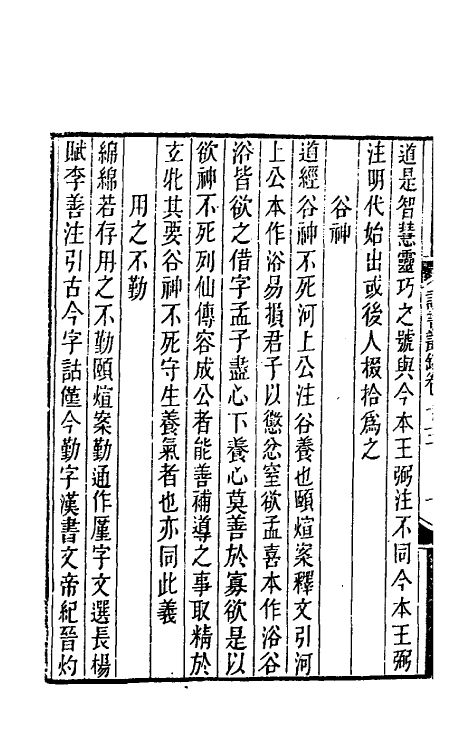 道是智慧靈巧之號與今本王弼注不同今本王弼
注明代始出或後人掇拾爲之
谷神
道經谷神不死河上公注谷養也頤煊案釋文引河
上公本作浴易損君子以懲忿窒欲孟喜本作浴谷
浴皆欲之借字孟子盡心下養心莫善於寡欲是以
欲神不死列仙傳容成公者能善補導之事取精於
玄牝其要谷神不死守生養氣者也亦同此義
用之不勤
綿綿若存用之不勤頤煊案勤通作廑字文選長楊
賦李善注引古今字詁廑今勤字漢書文帝紀晉灼